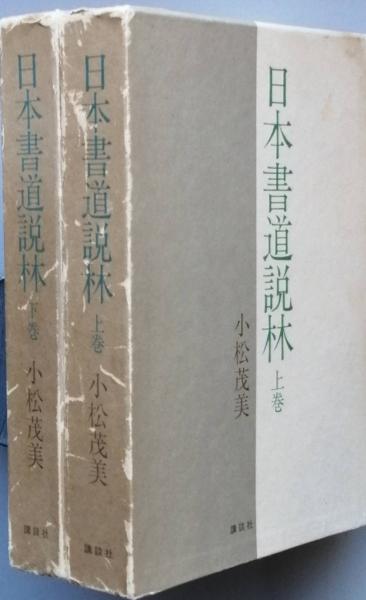 日本書道説林 上巻
小松茂美
日本書道説林 上巻 小松茂美
講談社
日本書道説林 下巻 小松茂美
講談社